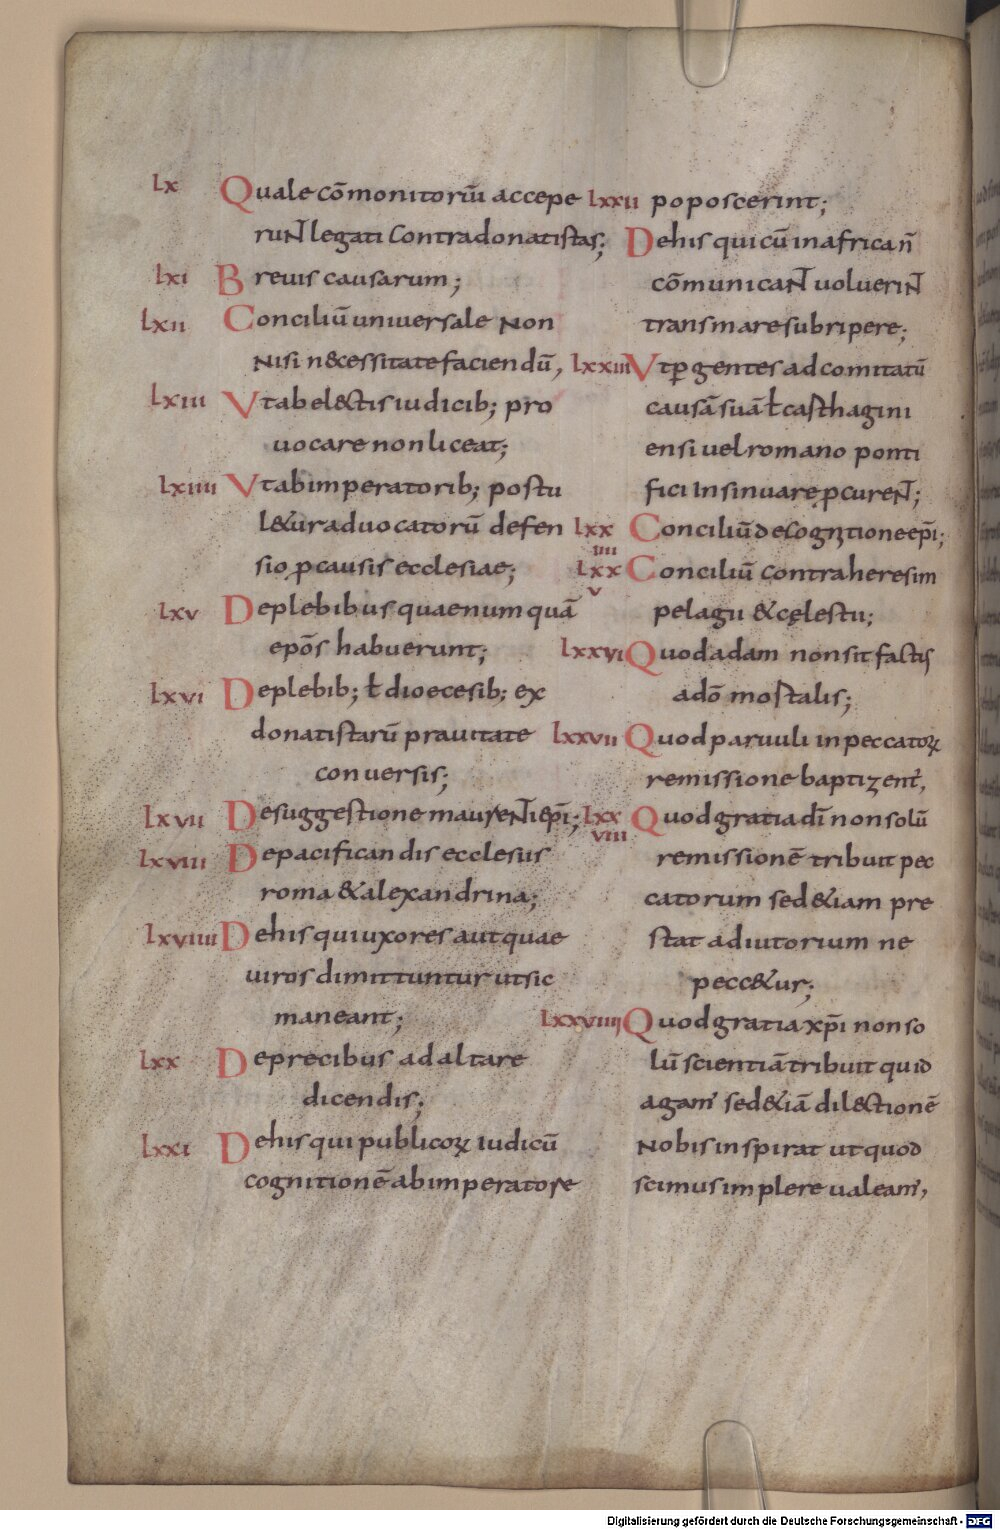 lx Quale cōmonitoriū accepe
ruNT legati contra donatistas;
lxi Breuis causarum;
lxii Concilıū uniuersale non
nisi n&cessitate faciendū,
lxiii Vt ab el&ctis iudicib; pro
uocare non liceat;
lxiiii Vt ab imperatorib; postu
l&ur aduocatorū defen
sio ꝓ causis ecclesiae;
lxv De plebibus quae numquā
epōs habuerunt;
lxvi De plebib; ł dioecesib; ex
donatistarū prauitate
conuersis;
lxvii De suggestione maureNTi epī;
lxviii De pacificandis ecclesiis
roma & alexandrina;
lxviiii De his qui uxores aut quae
uiros dimittuntur ut sic
maneant;
lxx De precibus ad altare
dicendis;
lxxi De his qui publicoꝝ iudicū
cognitionē ab imperatore
poposcerint;
lxxii De his qui cū in african̄
cōmunicaNT uolueriNT
transmare subripere;
lxxiii Vt ꝑgentes ad comitatū
causā suā ł casthagini
ensi uel romano ponti
fici insinuare ꝓcureNT;
lxxiiii Conciliū de cognitione epī;
lxxv Conciliū contra heresim
pelagii & cęlestii;
lxxvi Quod adam non sit factus
a dō mostalis;
lxxvii Quod paruuli in peccatoꝝ
remissione baptizent,
lxxviii Quod gratia dī non solū
remissionē tribuit pec
catorum sed &iam pre
stat adiutorium ne
pecc&ur;
lxxviiii Quod gratia xp̄i non so
lū scientiā tribuit quid
agam' sed &iā dil&ctionē
nobis inspirat ut quod
scimus implere ualeam',
Digitalisierung gefördert durch die Deutsche Forschungsgemeinschaft - DFG